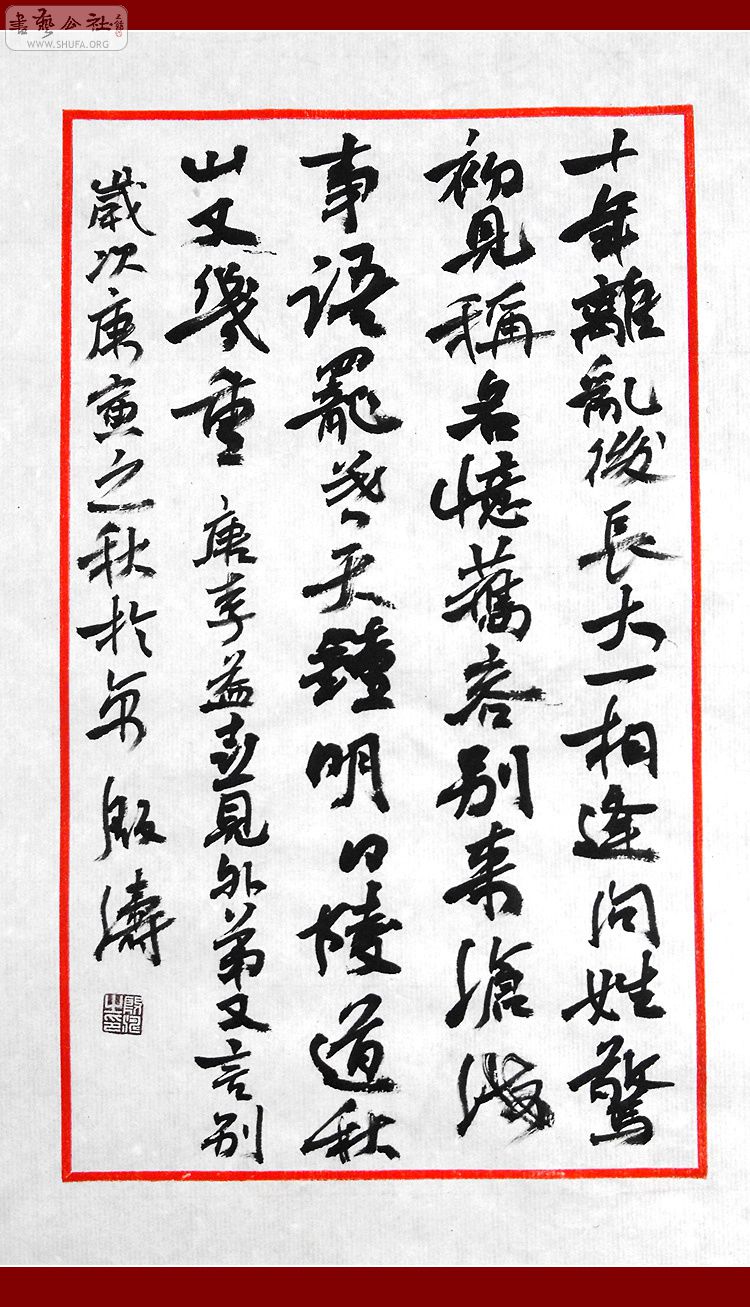 書藝公社
WWW.SHUFA.ORG
十年離亂後長大一相逢問姓驚
初見稱名憶舊容別來滄海
事語罷暮天鐘明日陵道秋
山又幾重 唐李益喜見外弟又言別
歲次庚寅之秋於京 殷濤